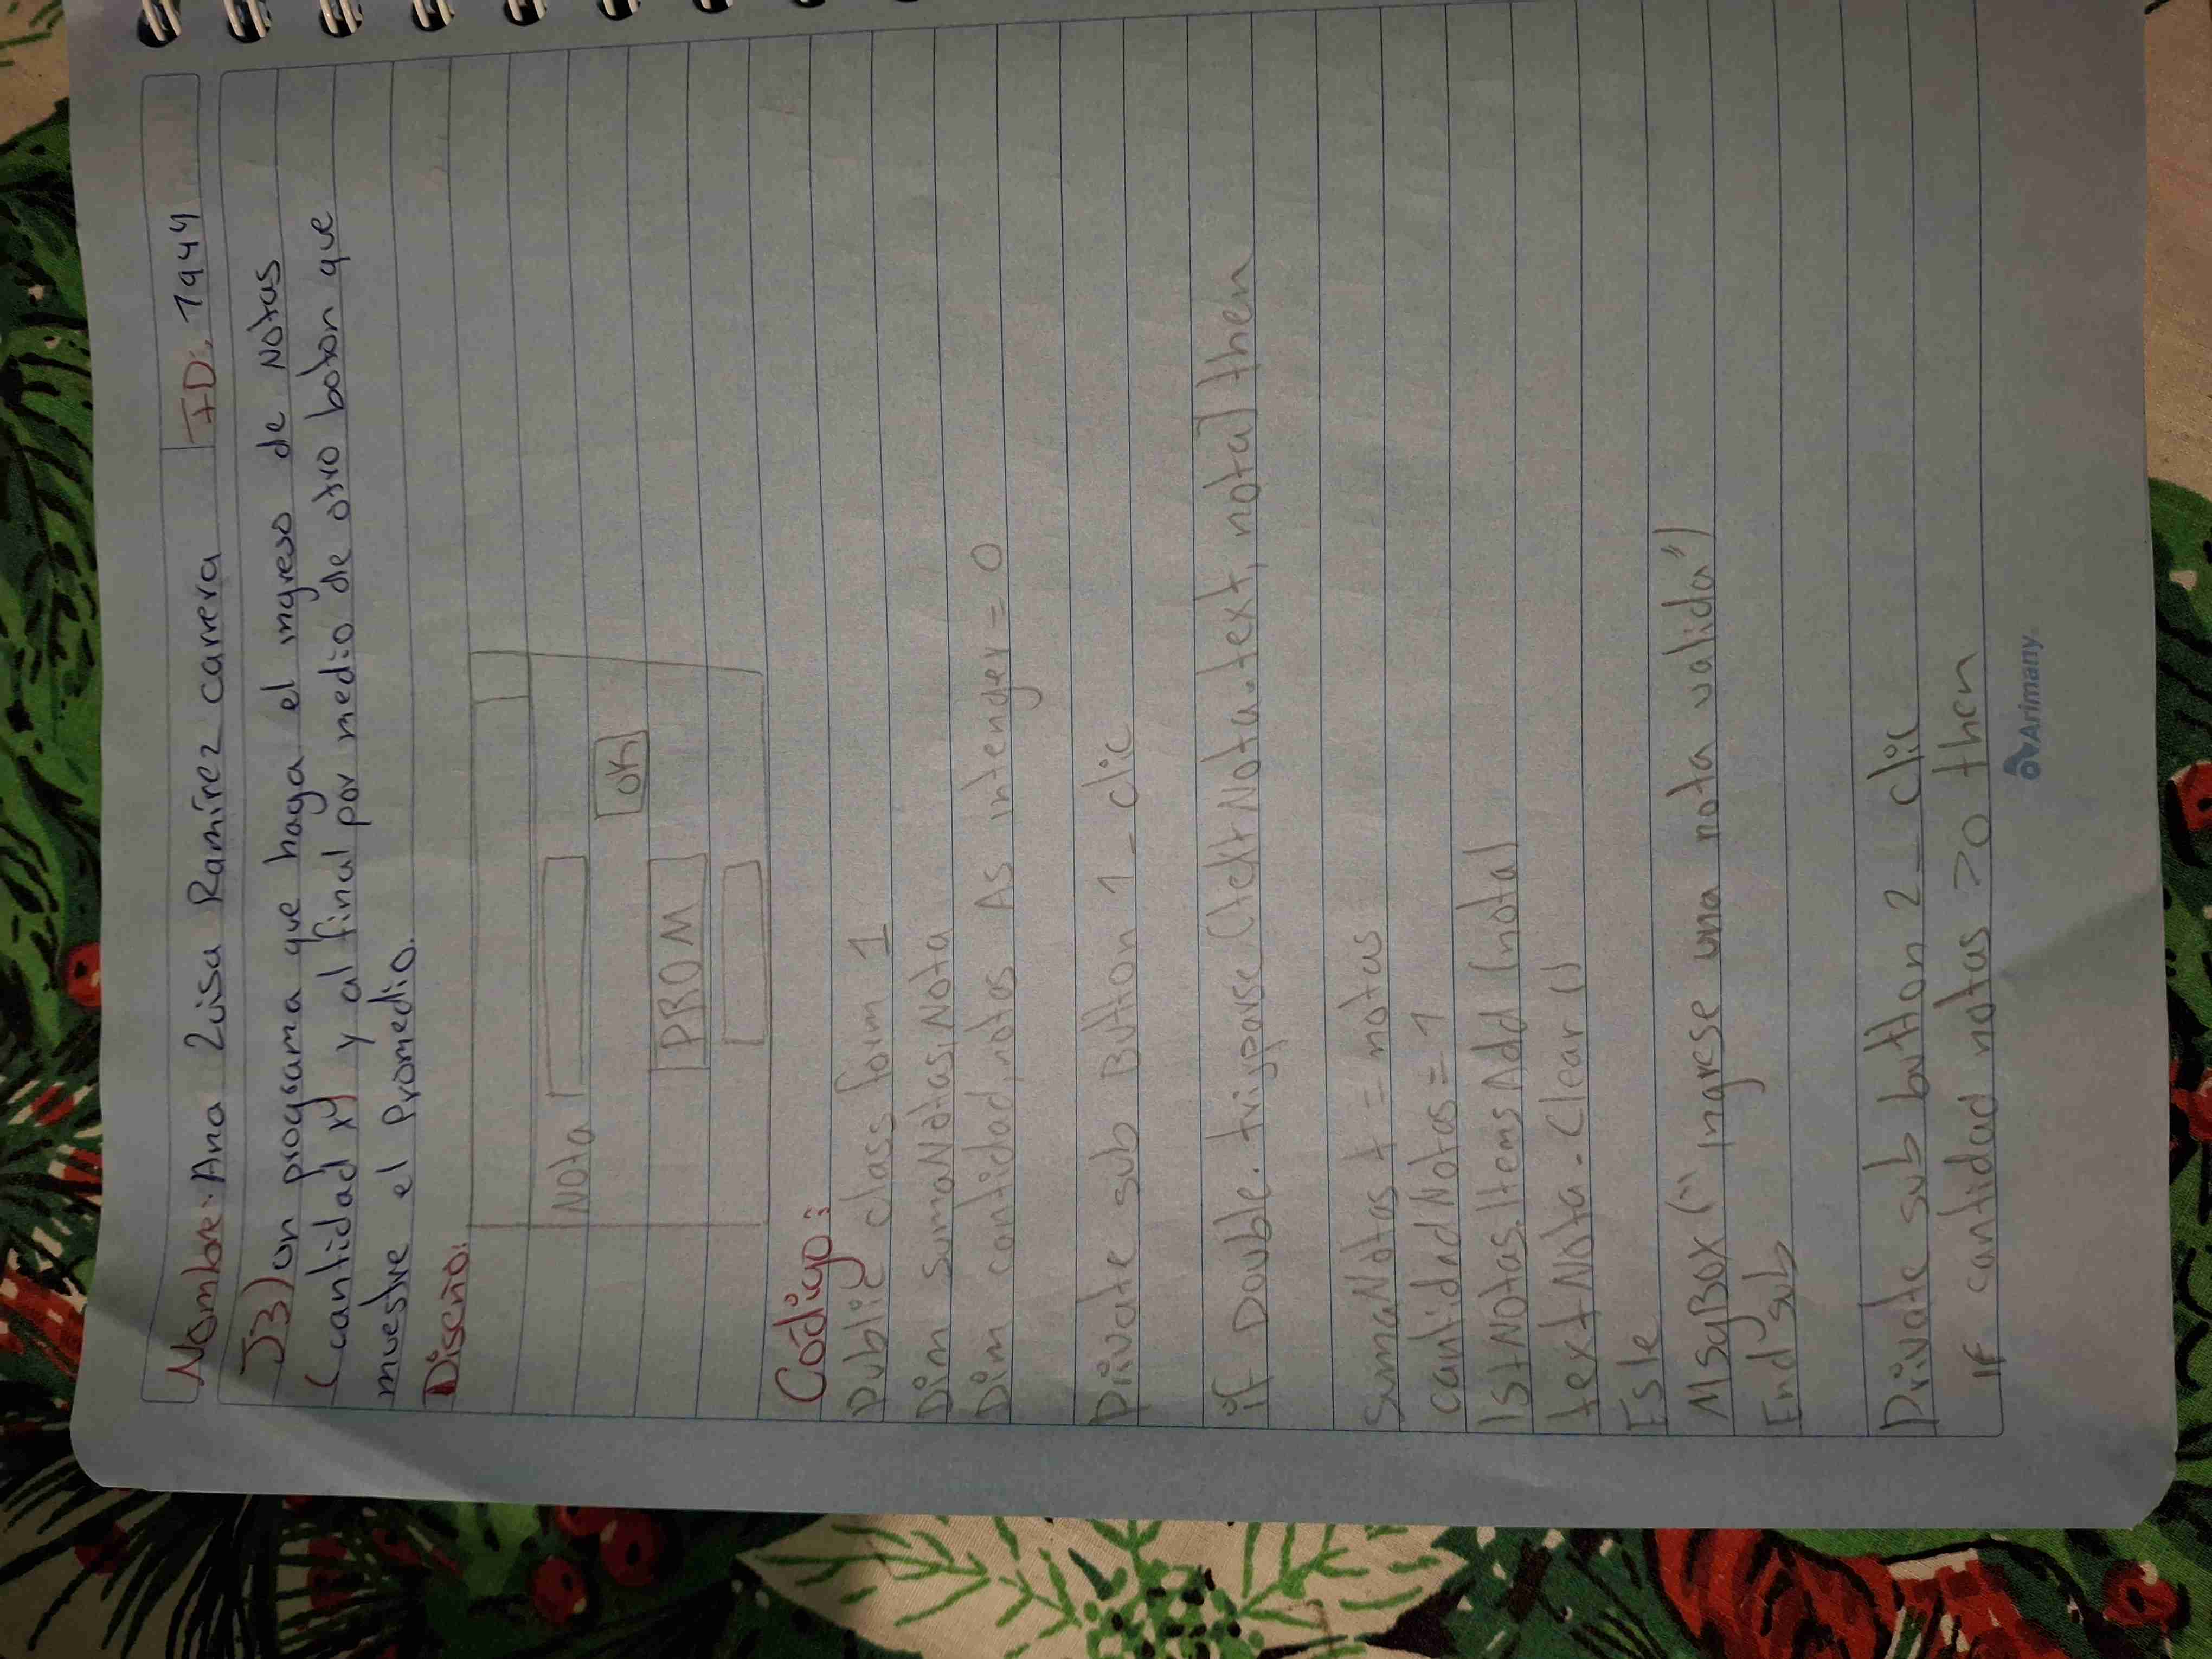 Nombre: Ana Luisa Ramírez carrera ID: 1944
J3) un programa que haga el ingreso de Notas
(cantidad xy y al final por medio de otro boton que
muestre el Promedio.
Diseño:
Nota
OK
PROM
Código:
Public class form 1
Dim sumaNotas, Nota
Dim cantidad, notas As intenger = 0
Private sub Button 1 - clic
if Double. triyparse (textNota.text, nota) then
SumaNotas + = notas
cantidadNotas = 1
lstNotas. Items Add (nota)
textNota. Clear ()
Esle
MsgBox (" ingrese una nota valida")
End sub
Private sub button 2 - clic
IF cantidad notas > 0 then
Arimany